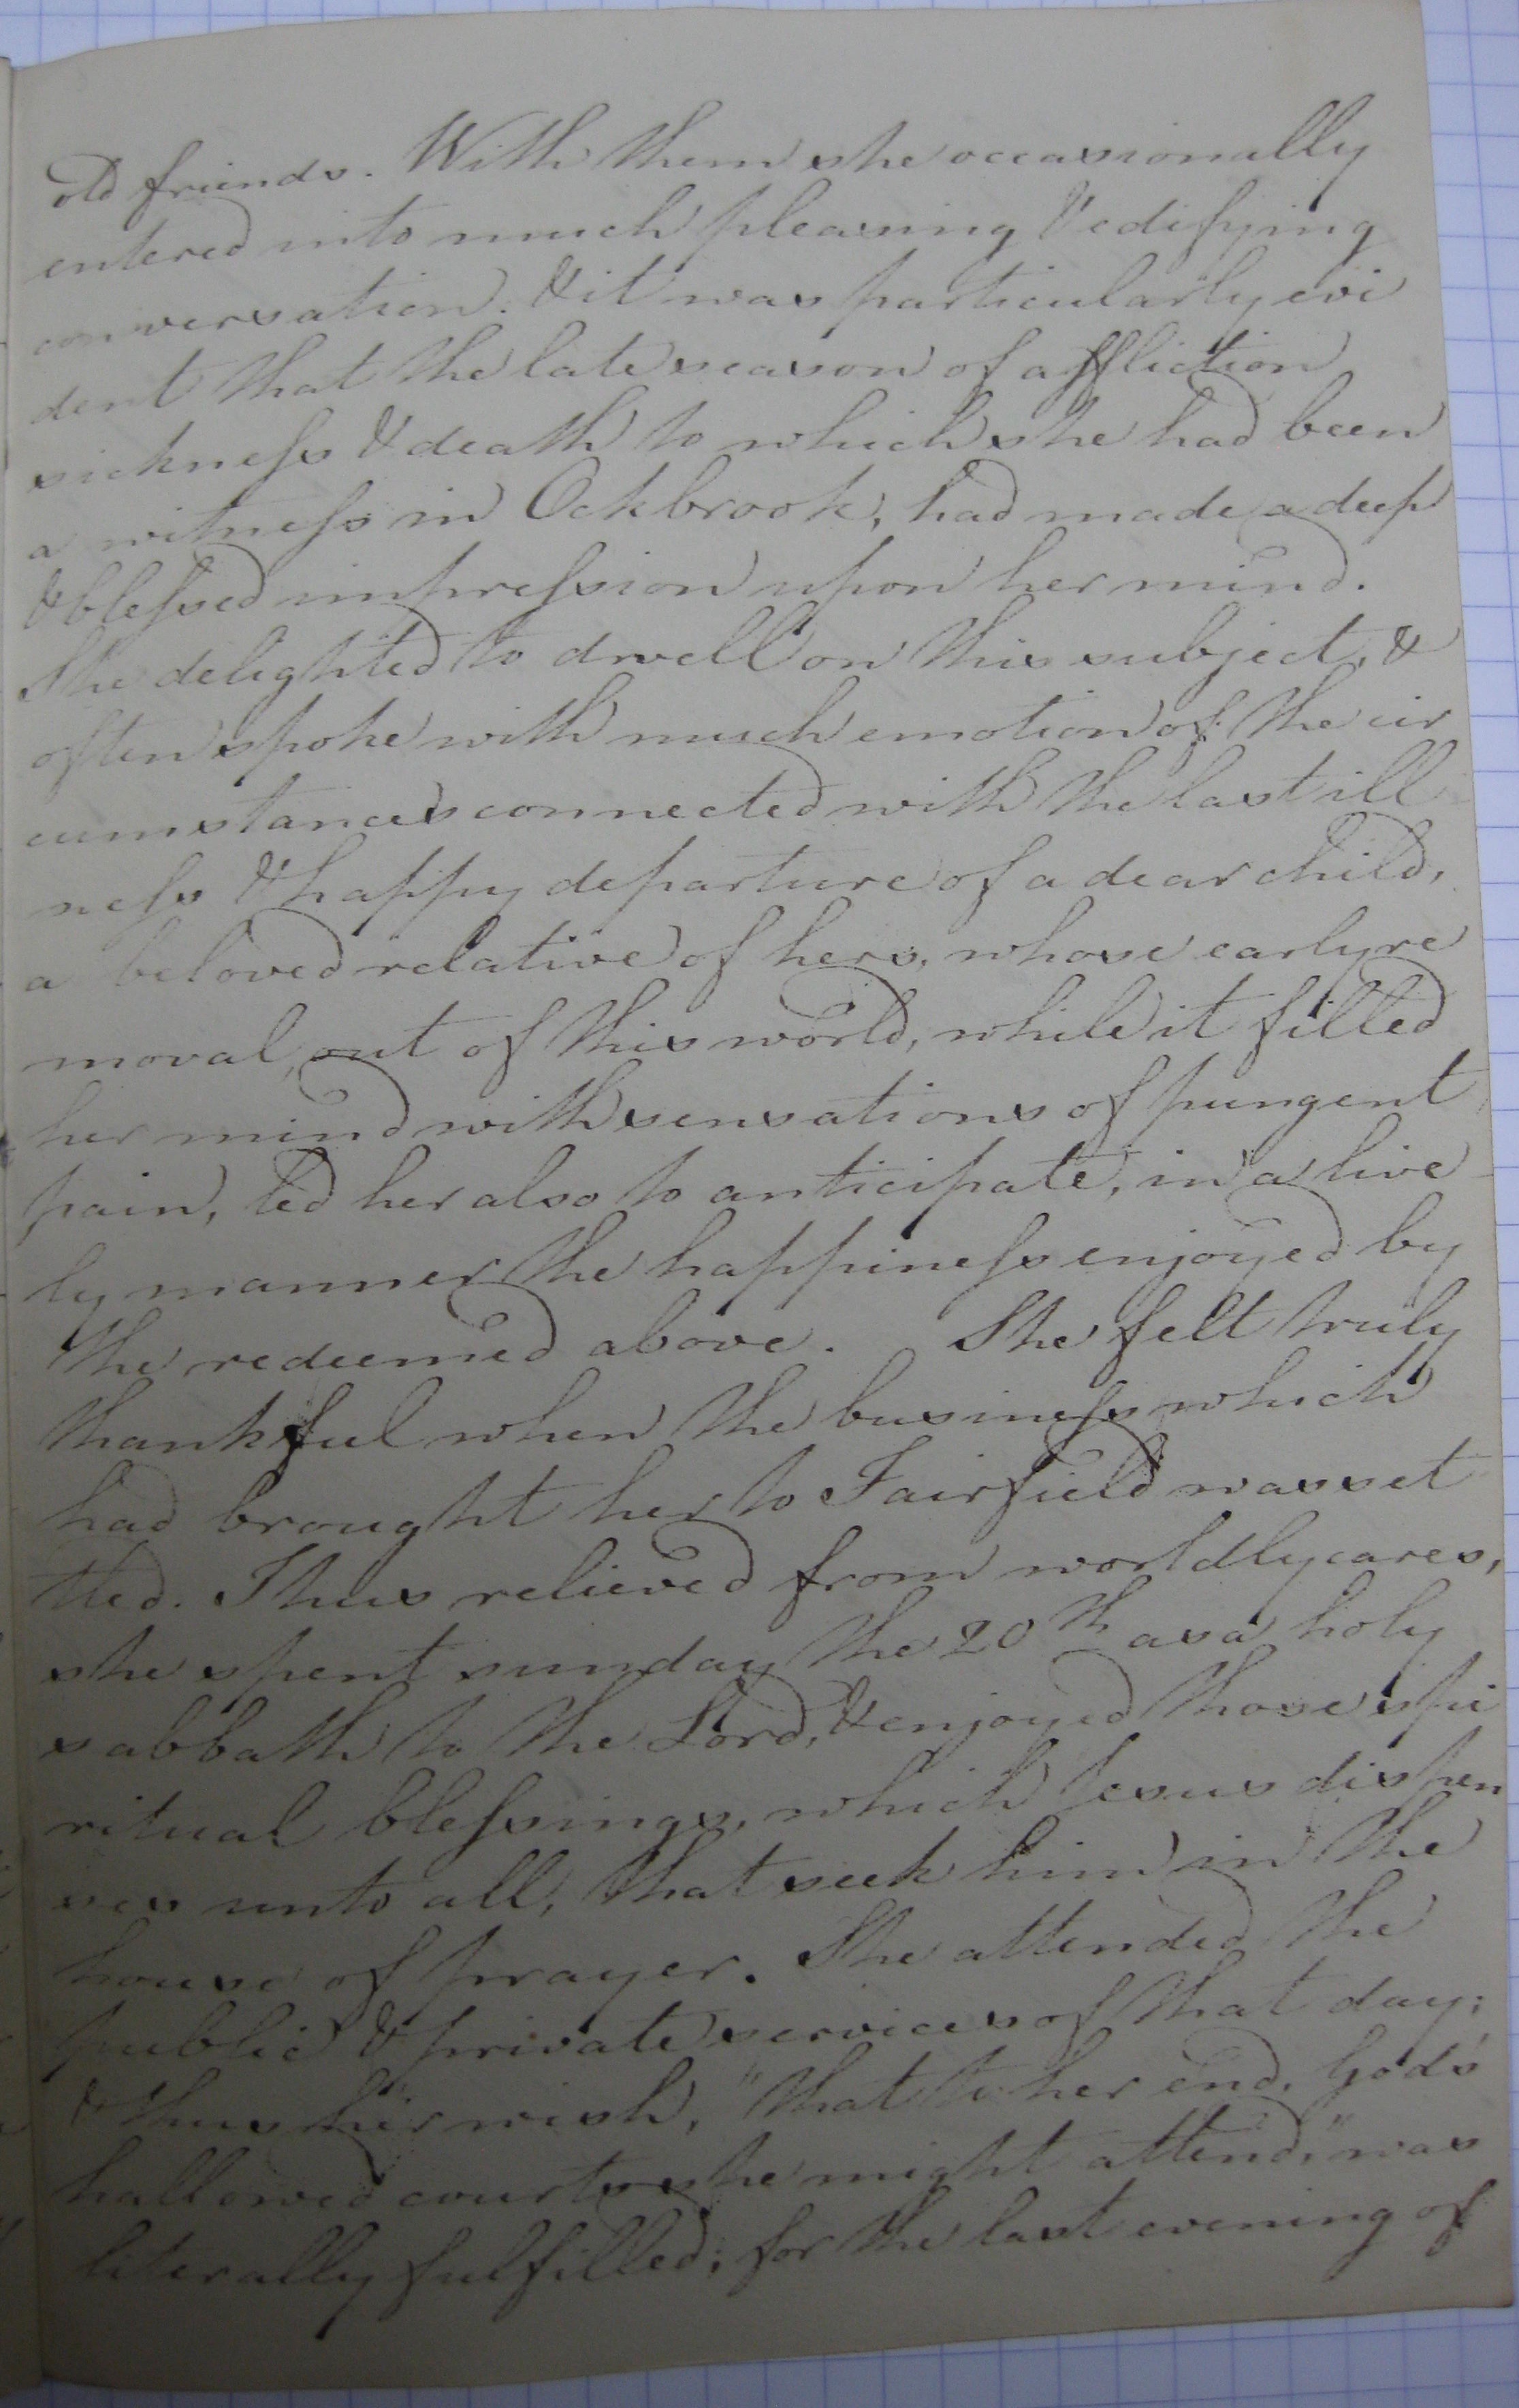 old friends. With them she occasionally
entered into much pleasing & edifying
conversation. & it was particularly evi
dent that the late season of affliction
sickness & death to which she had been
a witness in Ockbrook, had made a deep
& blessed impression upon her mind.
She delighted to dwell on this subject, &
often spoke with much emotion of the cir
cumstances connected with the last ill
ness & happy departure of a dear child,
a beloved relative of hers, whose early re
moval, out of this world, while it filled
her mind with sensations of pungent
pain, led her also to anticipate, in a live-
ly manner the happiness enjoyed by
the redeemed above. She felt truly
thankful when the business which
had brought her to Fairfield was set
tled. Thus relieved from worldly cares,
she spent sunday the 20th as a holy
sabbath to the Lord, & enjoyed those spi
ritual blessings, which Jesus dispen
ses unto all, that seek him in the
house of prayer. She attended the
public & private services of that day;
& thus her wish, "that to her end, God's
hallowed courts she might attend," was
literally fulfilled; for the last evening of